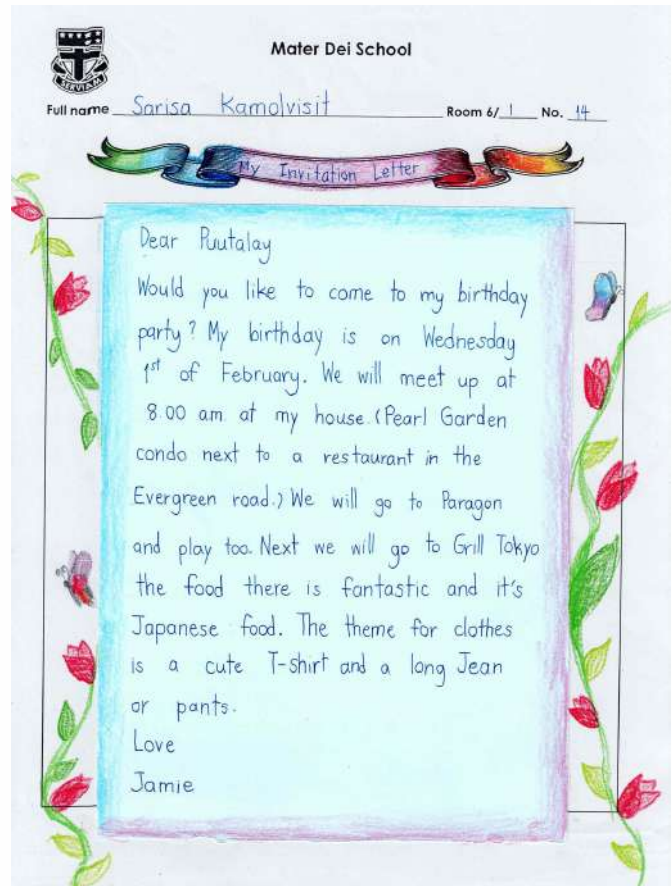 Mater Dei School
SERVIAM
Full name Sarisa Kamolvisit Room 6/ 1 No. 14
My Invitation Letter
Dear Puutalay
Would you like to come to my birthday
party? My birthday is on Wednesday
1st of February. We will meet up at
8.00 am. at my house.(Pearl Garden
condo next to a restaurant in the
Evergreen road.) We will go to Paragon
and play too. Next we will go to Grill Tokyo
the food there is fantastic and it's
Japanese food. The theme for clothes
is a cute T-shirt and a long Jean
or pants.
Love
Jamie